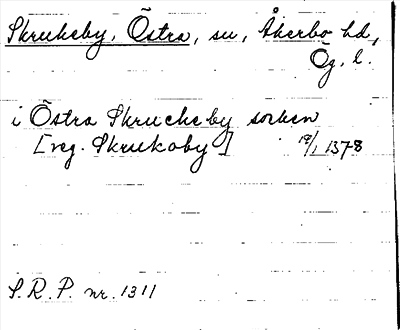 Skrukeby, Östra, sn, Åkerbo hd,
Ög. l.
i Östra Skrucheby socken
[reg. Skrukoby] 19/1 1378
S.R.P. nr. 1311